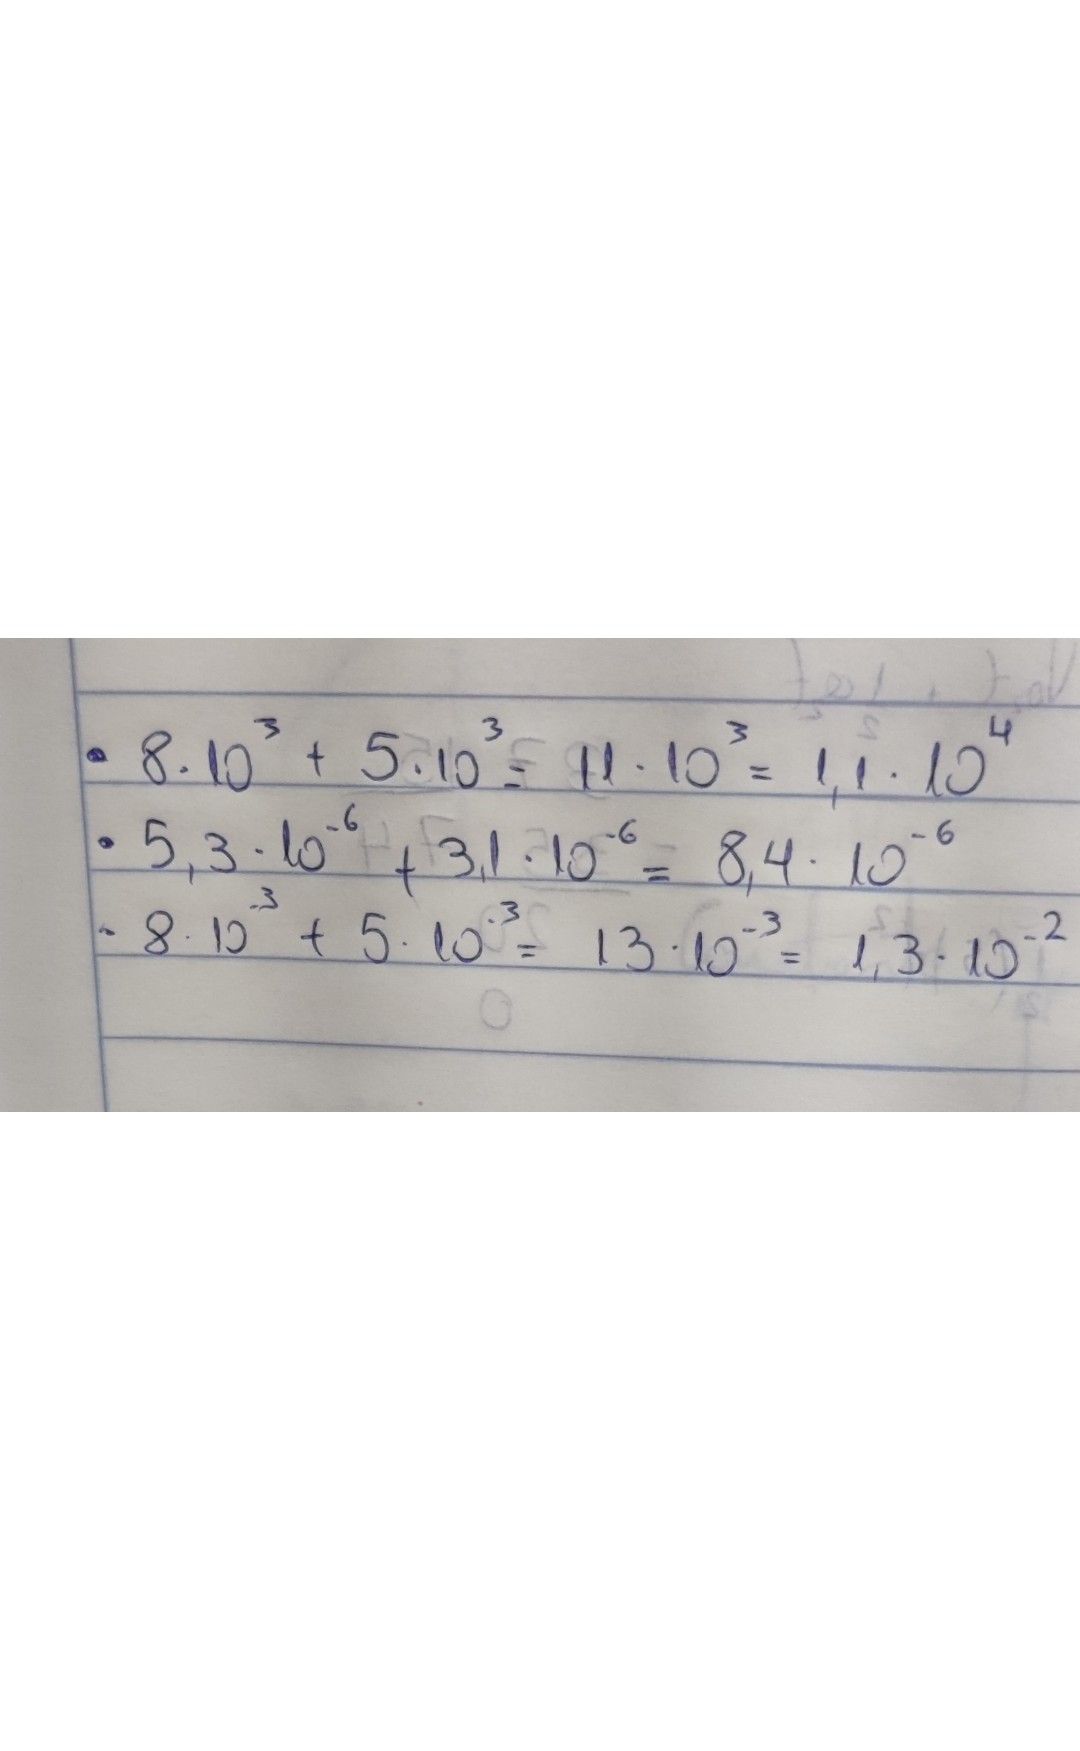 • 8·10³ + 5·10³ = 11·10³ = 1,1·10⁴
• 5,3·10⁻⁶ + 3,1·10⁻⁶ = 8,4·10⁻⁶
- 8·10⁻³ + 5·10⁻³ = 13·10⁻³ = 1,3·10⁻²